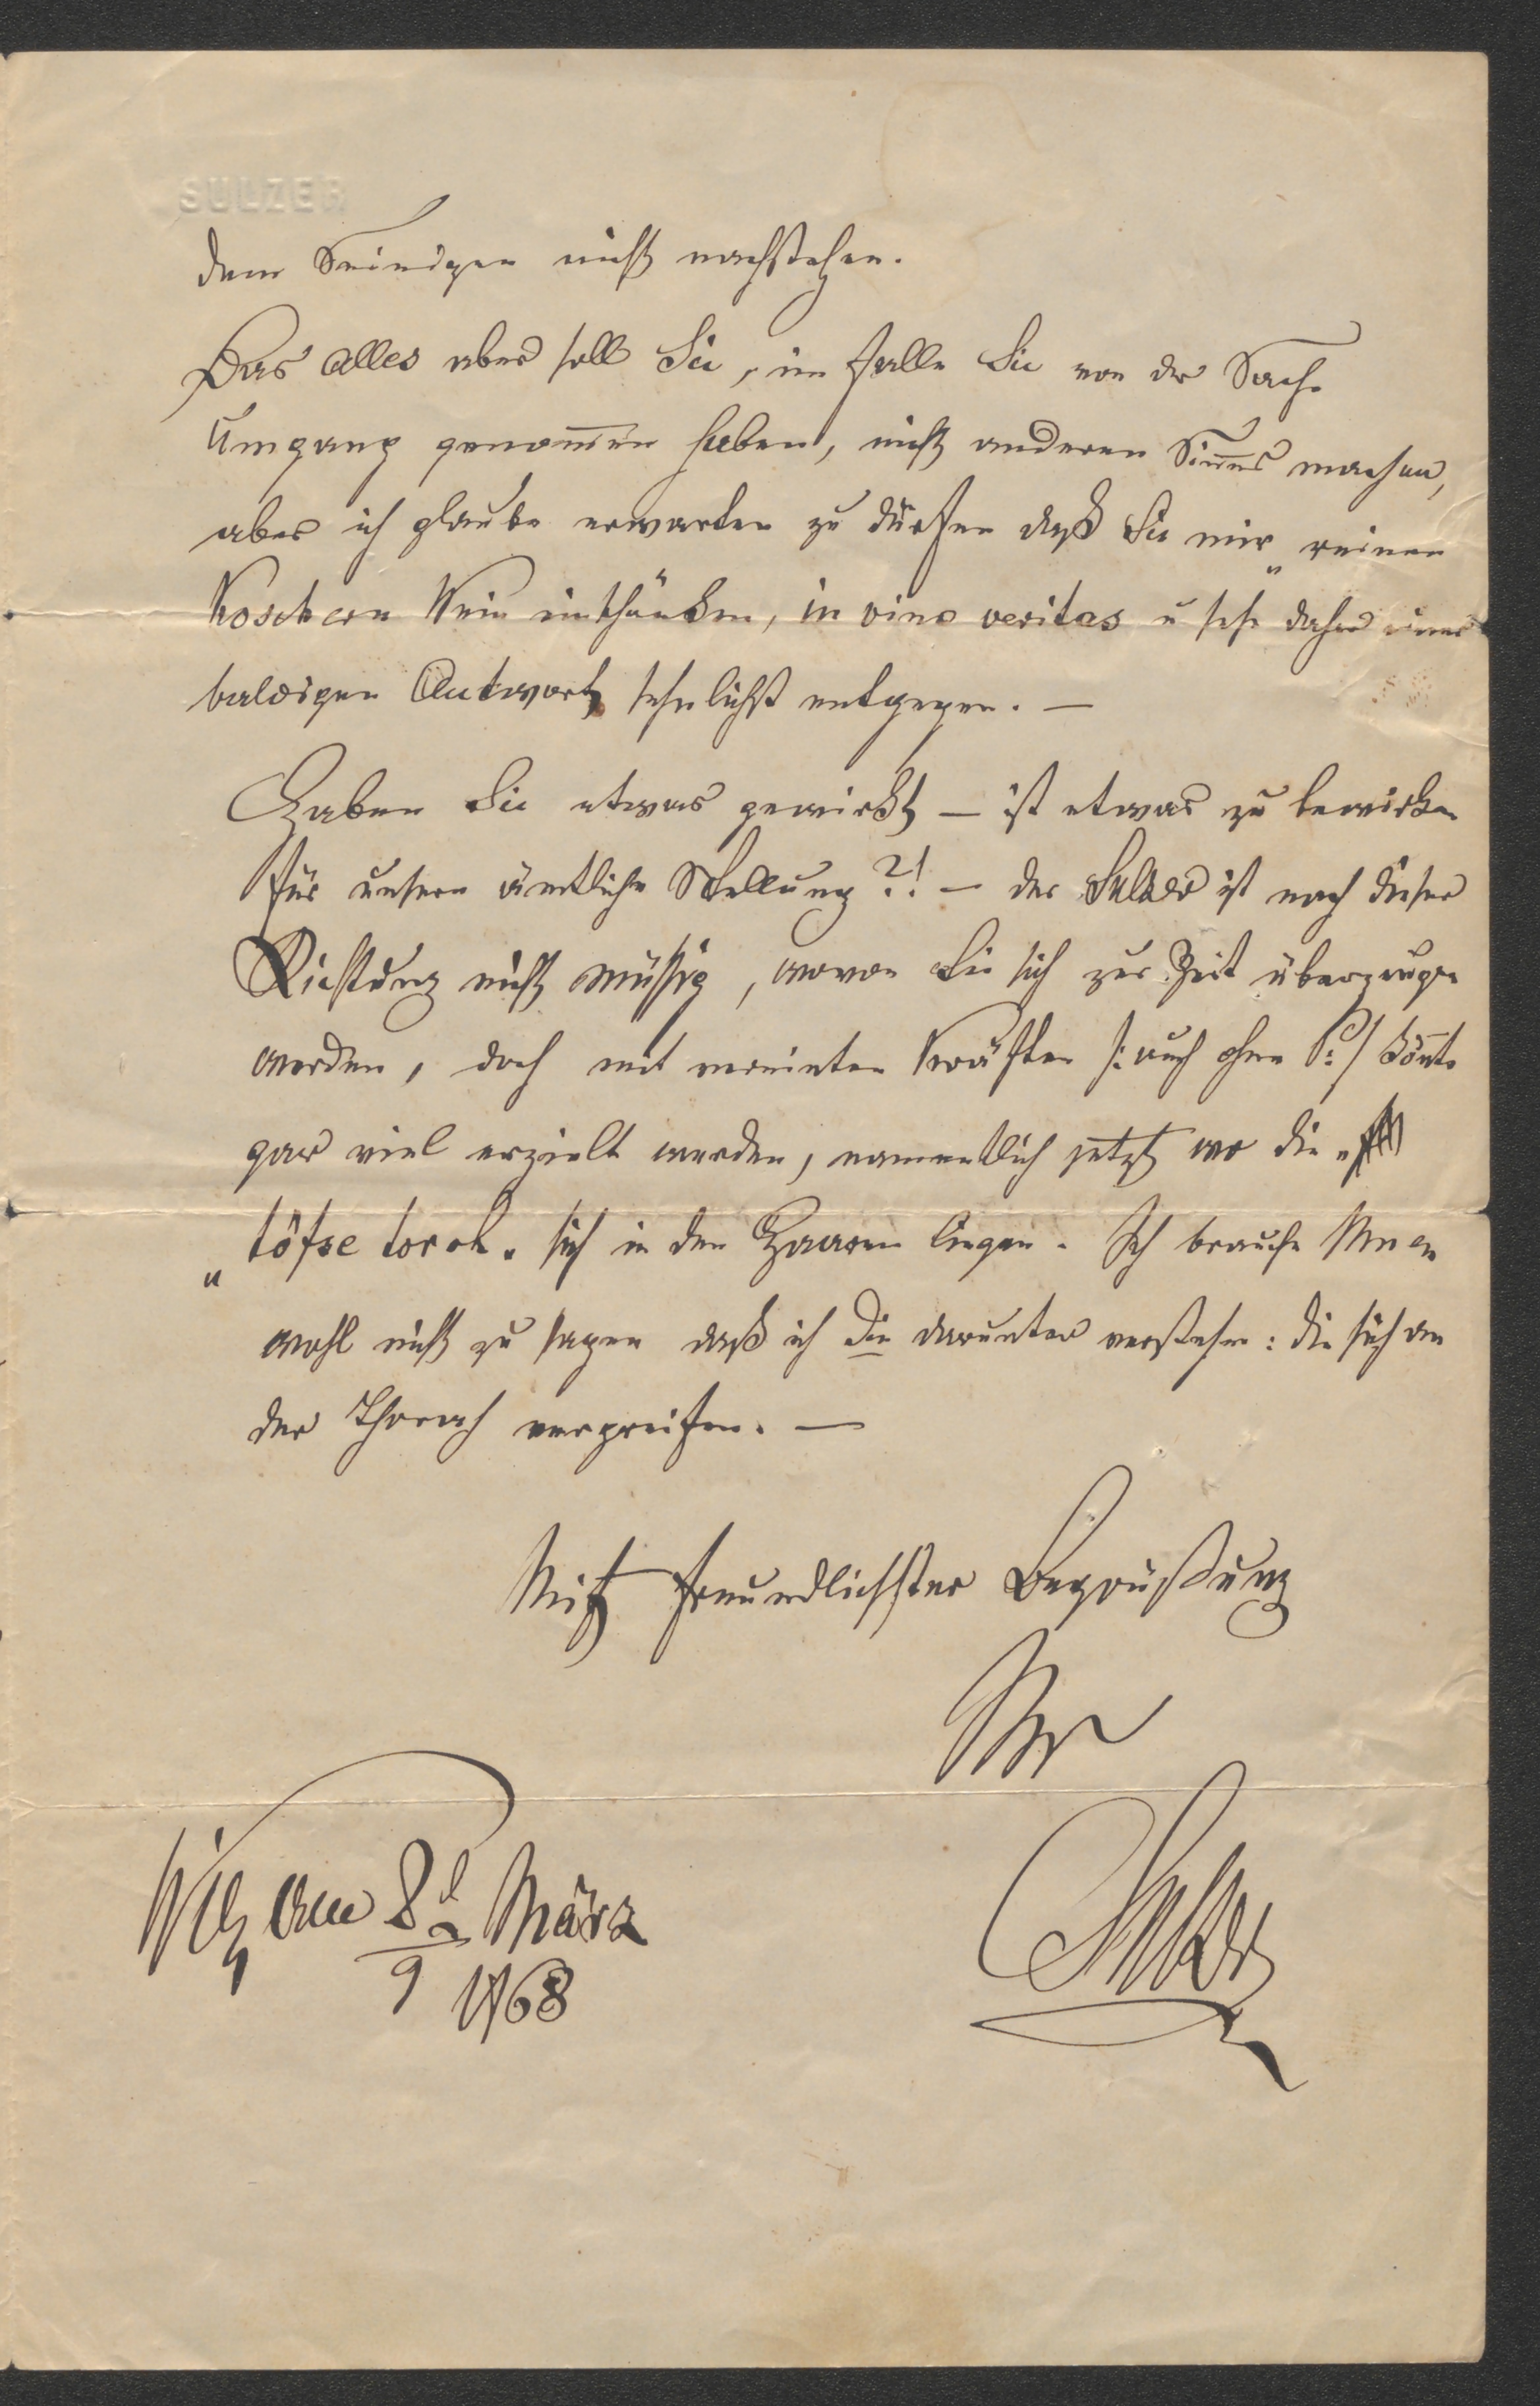 SULZER
dem Seinigen nicht nachstehen.
Das alles aber soll Sie, im Falle Sie von der Sache
Umgang genom̄en haben, nicht anderen Sin̄es machen,
aber ich glaube erwarten zu dürfen daß Sie mir „reinen
Koschern Wein einschänken, in vino veritas u sehe daher einer
baldigen Antwort sehnlichst entgegen. —
Haben Sie etwas gewirkt — ist etwas zu bewirken
für unsere ämtliche Stellung?! — der Sulzer ist nach dieser
Richtung nicht müssig, wovon Sie sich zur Zeit überzeugen
werden, doch mit vereinten Kräften /: auch ohne P: / kön̄te
gar viel erzielt werden, namentlich jetzt wo die
„töfse torah" sich in den Haaren liegen. Ich brauche Ihnen
wohl nicht zu sagen daß ich die darunter verstehe: die sich an
der Thorah vergreifen. —
Mit freundlichster Begrüßung
Ihr
Sulzer
Wien am 8/9 März
1868